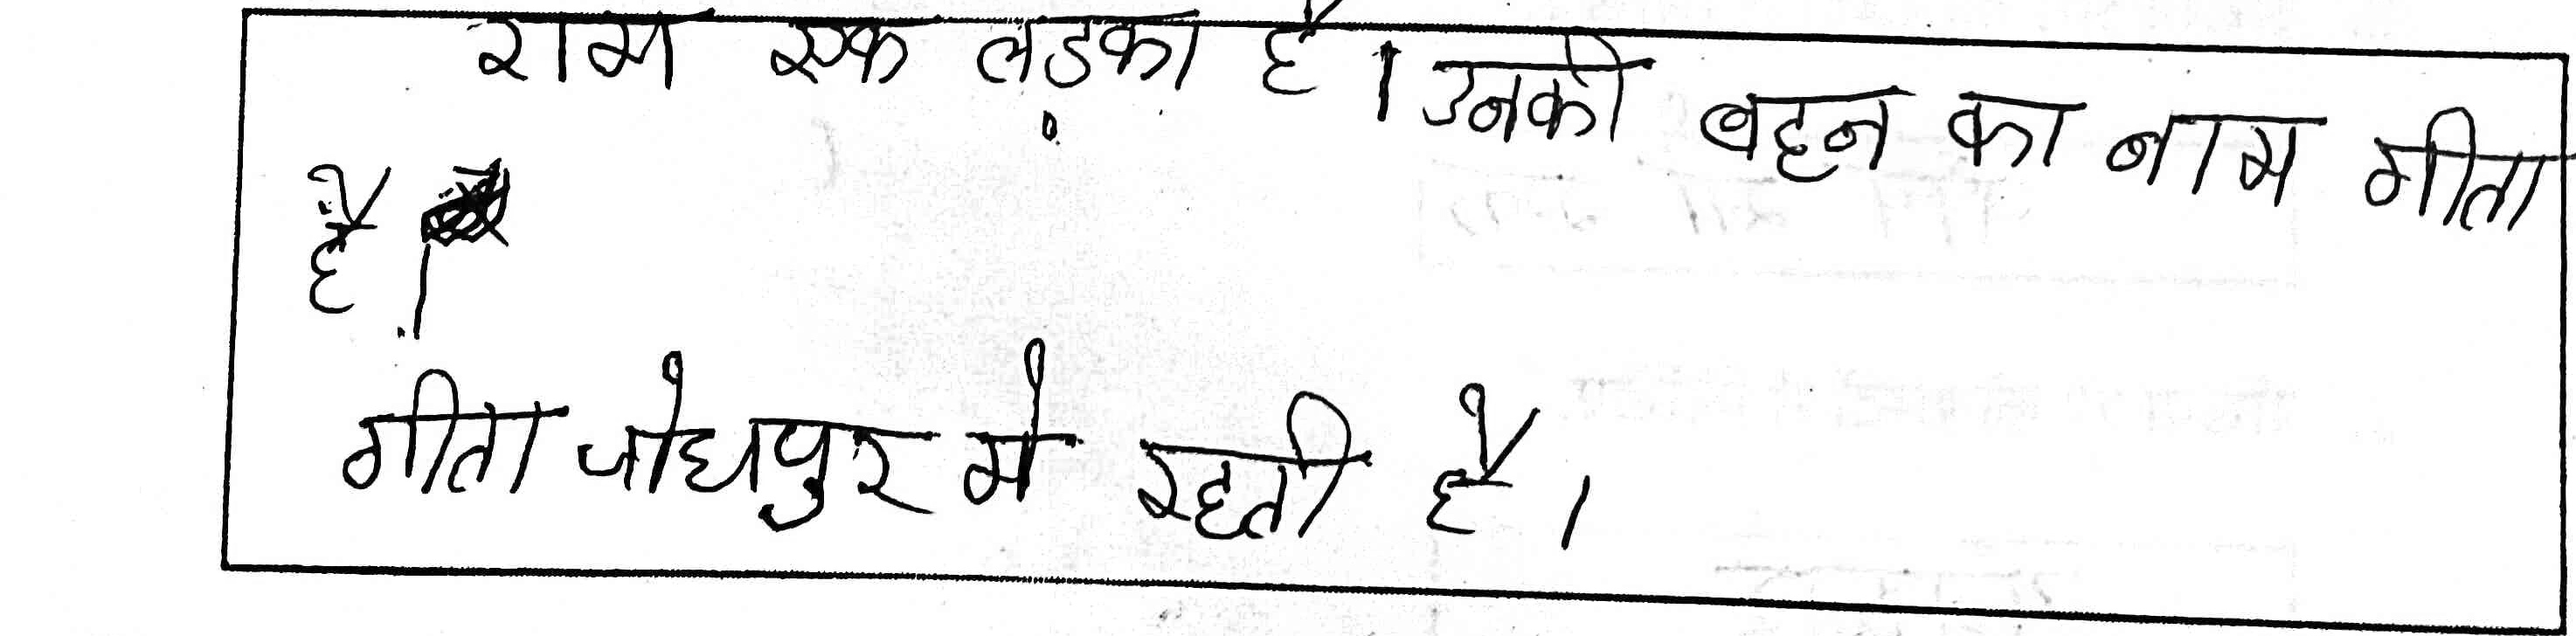 राम एक लड़का है। उनकी बहन का नाम गीता
है।
गीता जोधपुर मे रहती है।